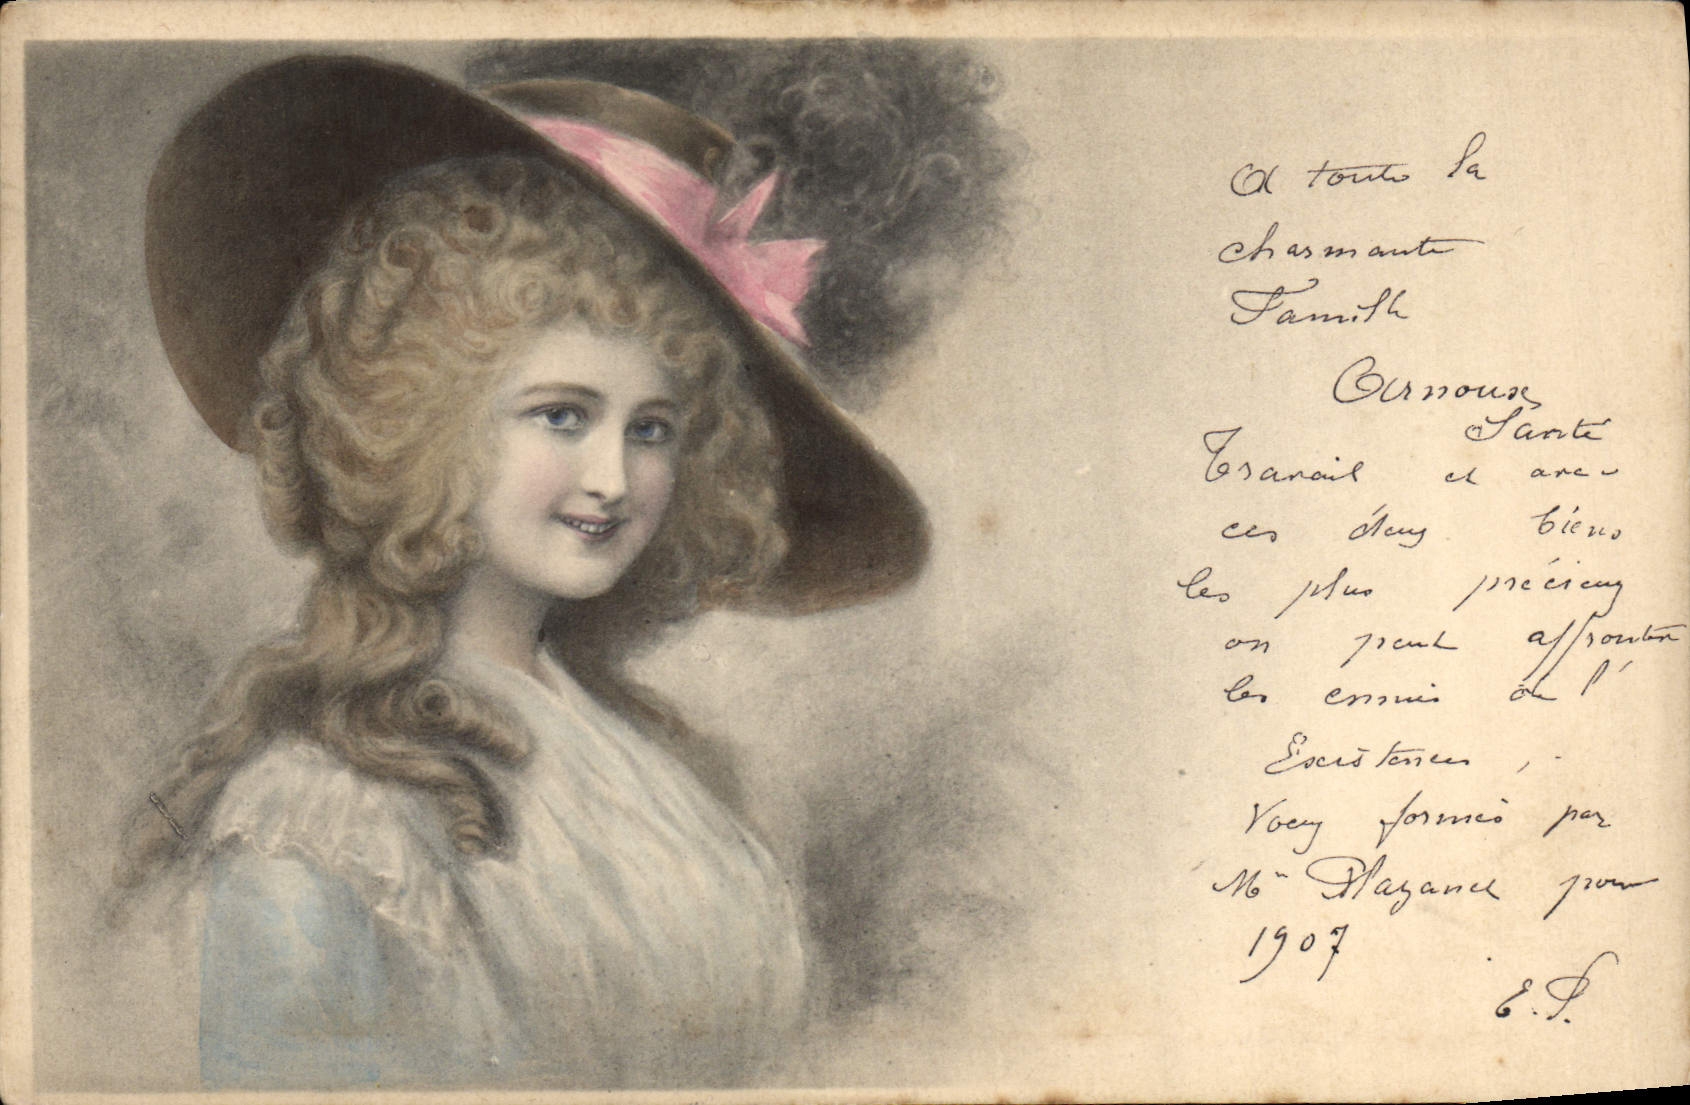 A toute la
charmante
Famille
Arnoux
Santé
Travail et avec
ces deux biens
les plus précieux
on peut affronter
les ennuis de l'
Existence,
Voeux formés par
Mme pour
1907
E. P.